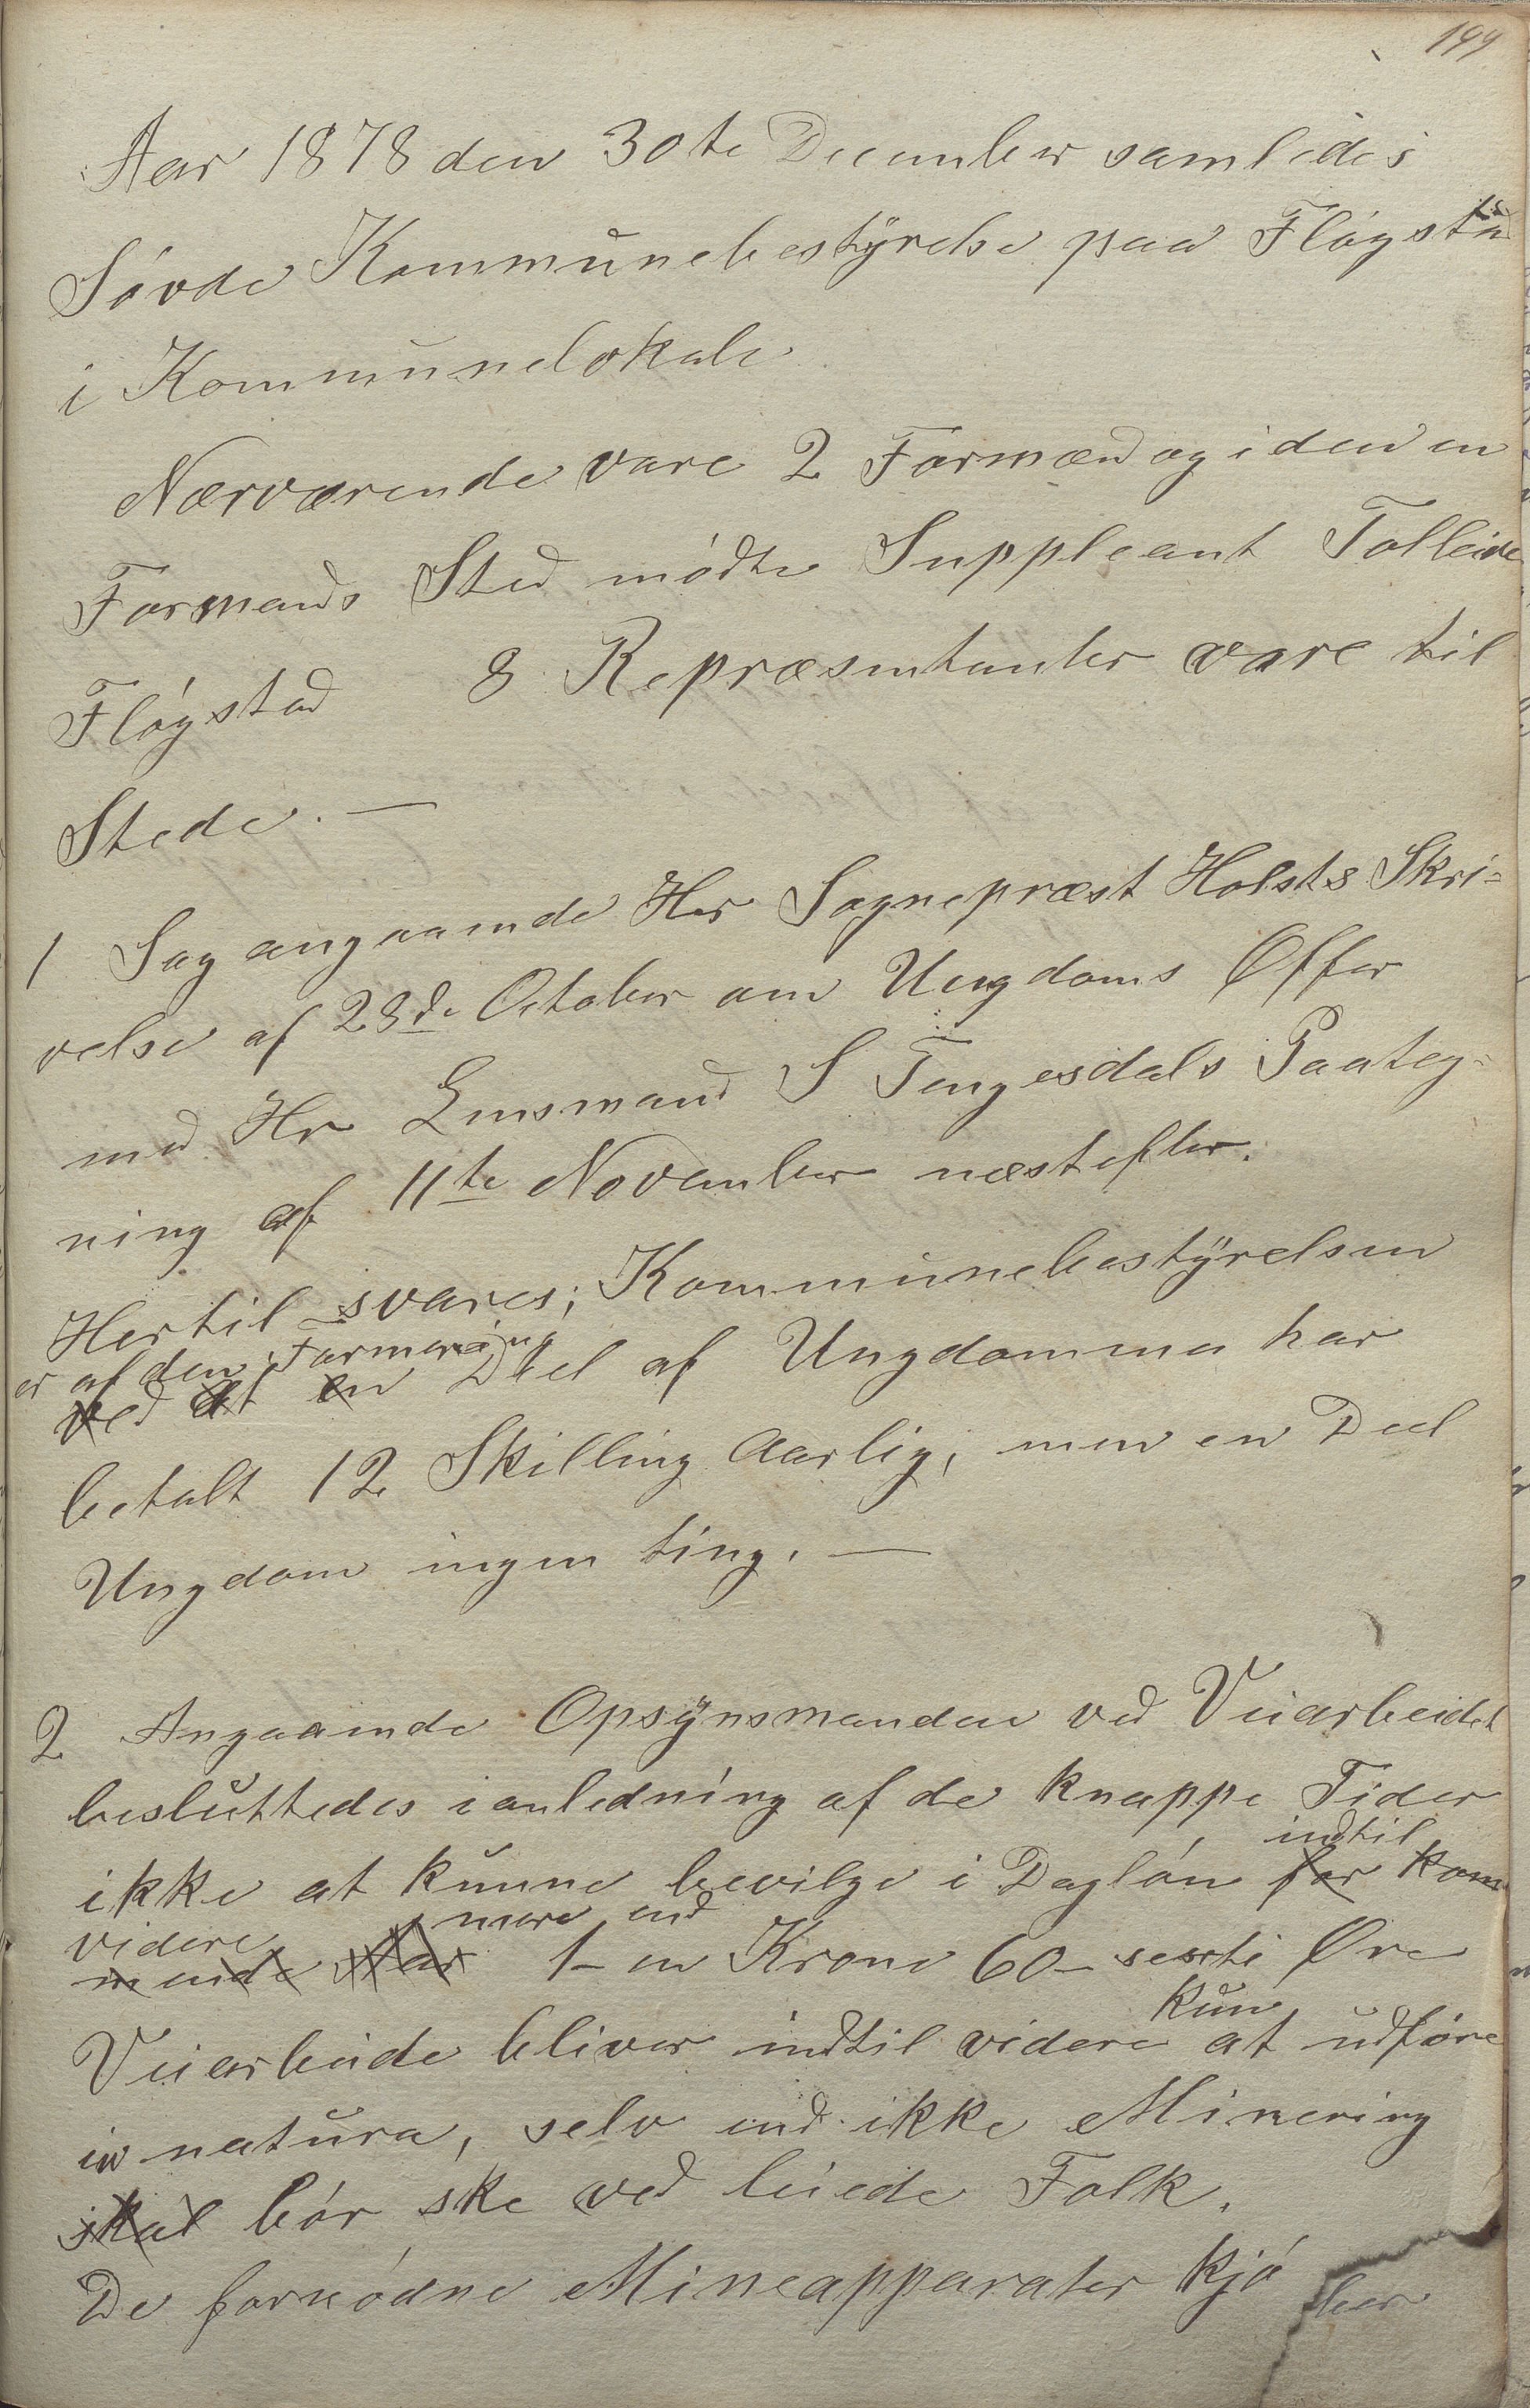 199
Aar 1878 den 30te December samledes
Søvde Kommunebestyrelse paa Fløgstad
i Kommunelokale
Nærværende vare 2 Formænd og i den en
Formands Sted mødte Suppleant Tolleiv
Fløgstad 8 Repræsentanter vare til
Stede. —
1 Sag angaaende Hr Sognepræst Holsts Skri=
velse af 28de October om Ungdoms Offer
med Hr Lensmand S Tengesdals Paateg=
ning af 11te November næstefter.
Hertil svares; Kommunebestyrelsen
er af den Formening
ved at en Deel af Ungdommen har
betalt 12 Skilling Aarlig, men en Deel
Ungdom ingen ting. —
2 Angaaende Opsynsmanden ved Veiarbeidet
besluttedes i anledning af de knappe Tider
indtil
ikke at kunne bevilge i Dagløn for kom
videre mere end
mende Aar 1 – en Krone 60 – sexti Øre
kun
Veiarbeide bliver indtil videre at udføre
in natura, selv end ikke Minering
skal bør ske ved leiede Folk.
De fornødne Mineapparater kjø
ber